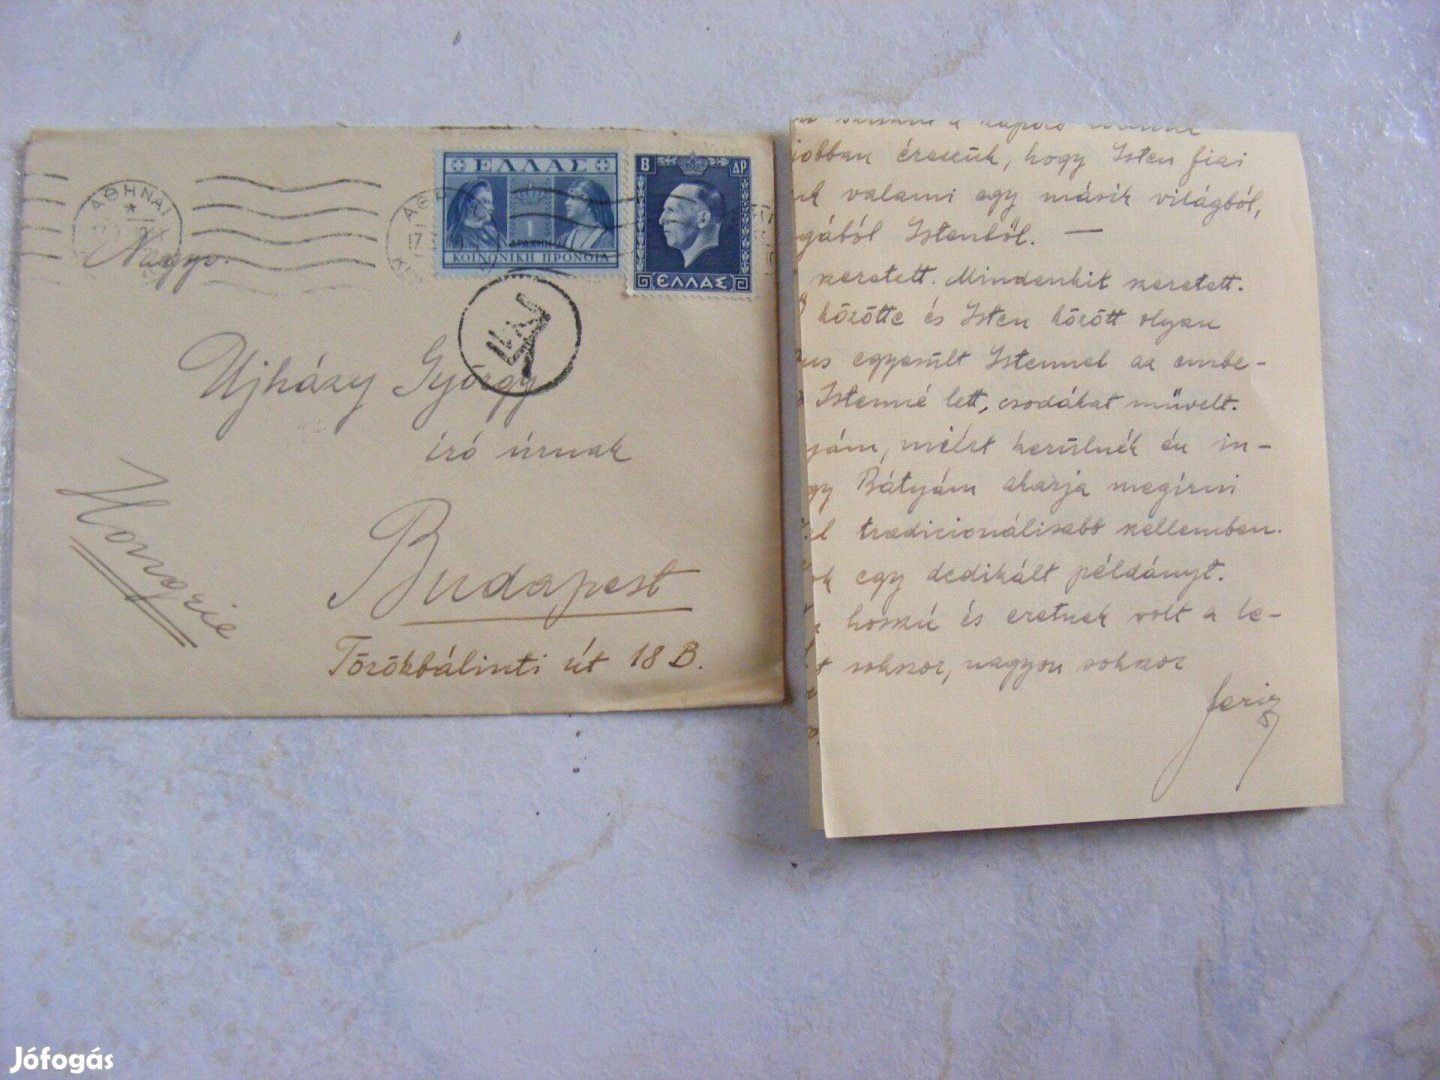 ΑΘΗΝΑΙ
17
Nagys.
ΕΛΛΑΣ
1
ΔΡΑΧΜΗ
ΚΟΙΝΩΝΙΚΗ ΠΡΟΝΟΙΑ
8 ΔΡ
ΕΛΛΑΣ
17
Ujházy György
író úrnak
Budapest
Törökbálinti út 18 B.
Hongrie
a kapott
jobban érezzük, hogy Isten fiai
valami egy másik világból,
Istenből. —
szeretett. Mindenkit szeretett.
közötte és Isten között olyan
egyesült Istennel az embe-
Istenné lett, csodákat művelt.
miért kerülnék én in-
Bátyám akarja megírni
tradicionálisabb szellemben.
egy dedikált példányt.
hosszú és eretnek volt a le-
sokszor, nagyon sokszor
Jófogás